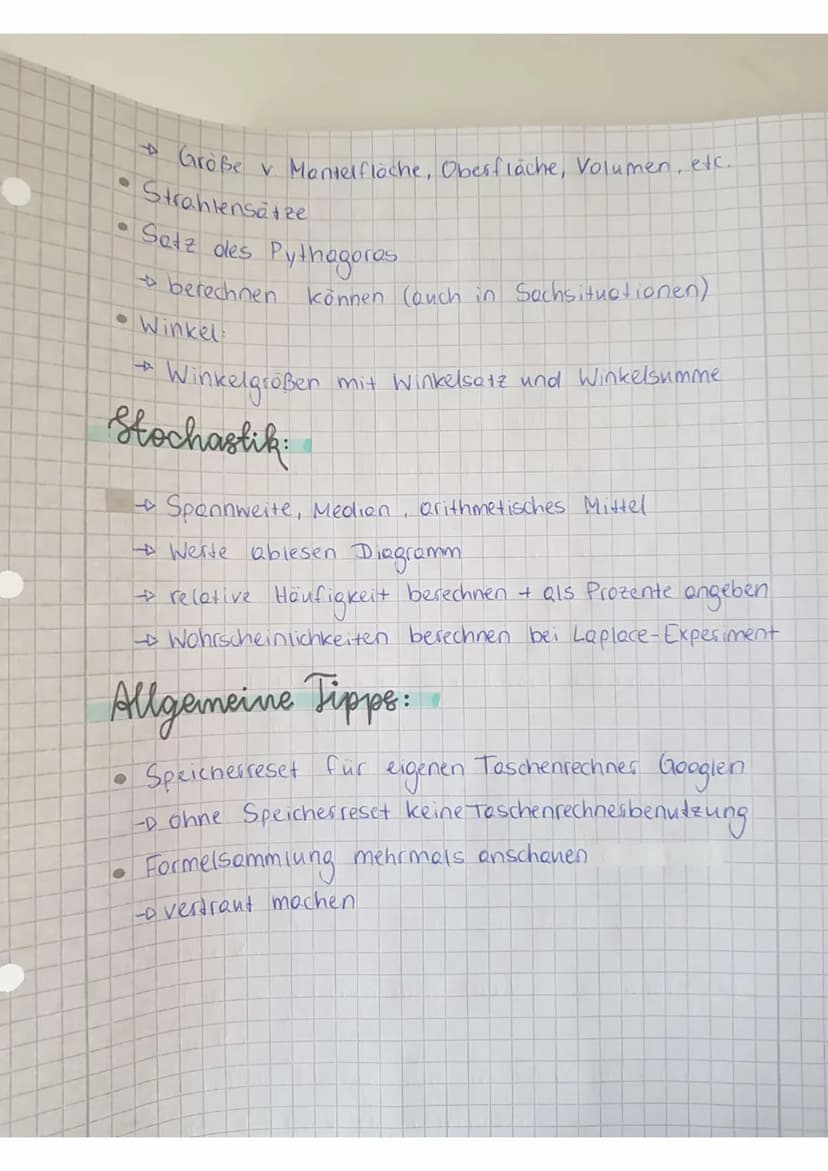 → Größe v Mantelfläche, Oberfläche, Volumen, etc.
• Strahlensätze
• Satz des Pythagoras
→ berechnen können (auch in Sachsituationen)
• Winkel:
→ Winkelgrößen mit Winkelsatz und Winkelsumme
Stochastik:
→ Spannweite, Median, arithmetisches Mittel
→ Werte ablesen Diagramm
→ relative Häufigkeit berechnen + als Prozente angeben
→ Wahrscheinlichkeiten berechnen bei Laplace-Experiment
Allgemeine Tipps:
• Speicherreset für eigenen Taschenrechner Googlen
→ ohne Speicherreset keine Taschenrechnerbenutzung
• Formelsammlung mehrmals anschauen
→ vertraut machen